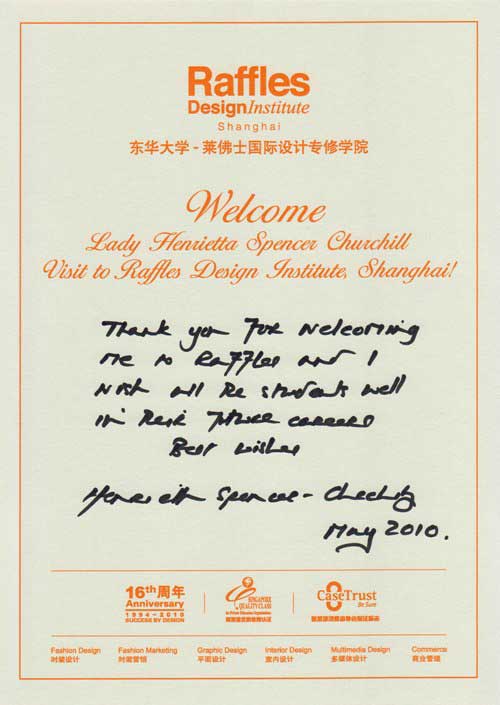 Raffles
DesignInstitute
Shanghai
东华大学-莱佛士国际设计专修学院
Welcome
Lady Henrietta Spencer Churchill
Visit to Raffles Design Institute, Shanghai!
Thank you for welcoming
me to Raffles and I
wish all the students well
in their future careers
Best wishes
Henrietta Spencer-Churchill
May 2010.
16th周年
Anniversary
1994-2010
SUCCESS BY DESIGN
SINGAPORE
QUALITY CLASS
for Private Education Organisations
CaseTrust
Be Sure
Fashion Design
时装设计
Fashion Marketing
时装营销
Graphic Design
平面设计
Interior Design
室内设计
Multimedia Design
多媒体设计
Commerce
商业管理